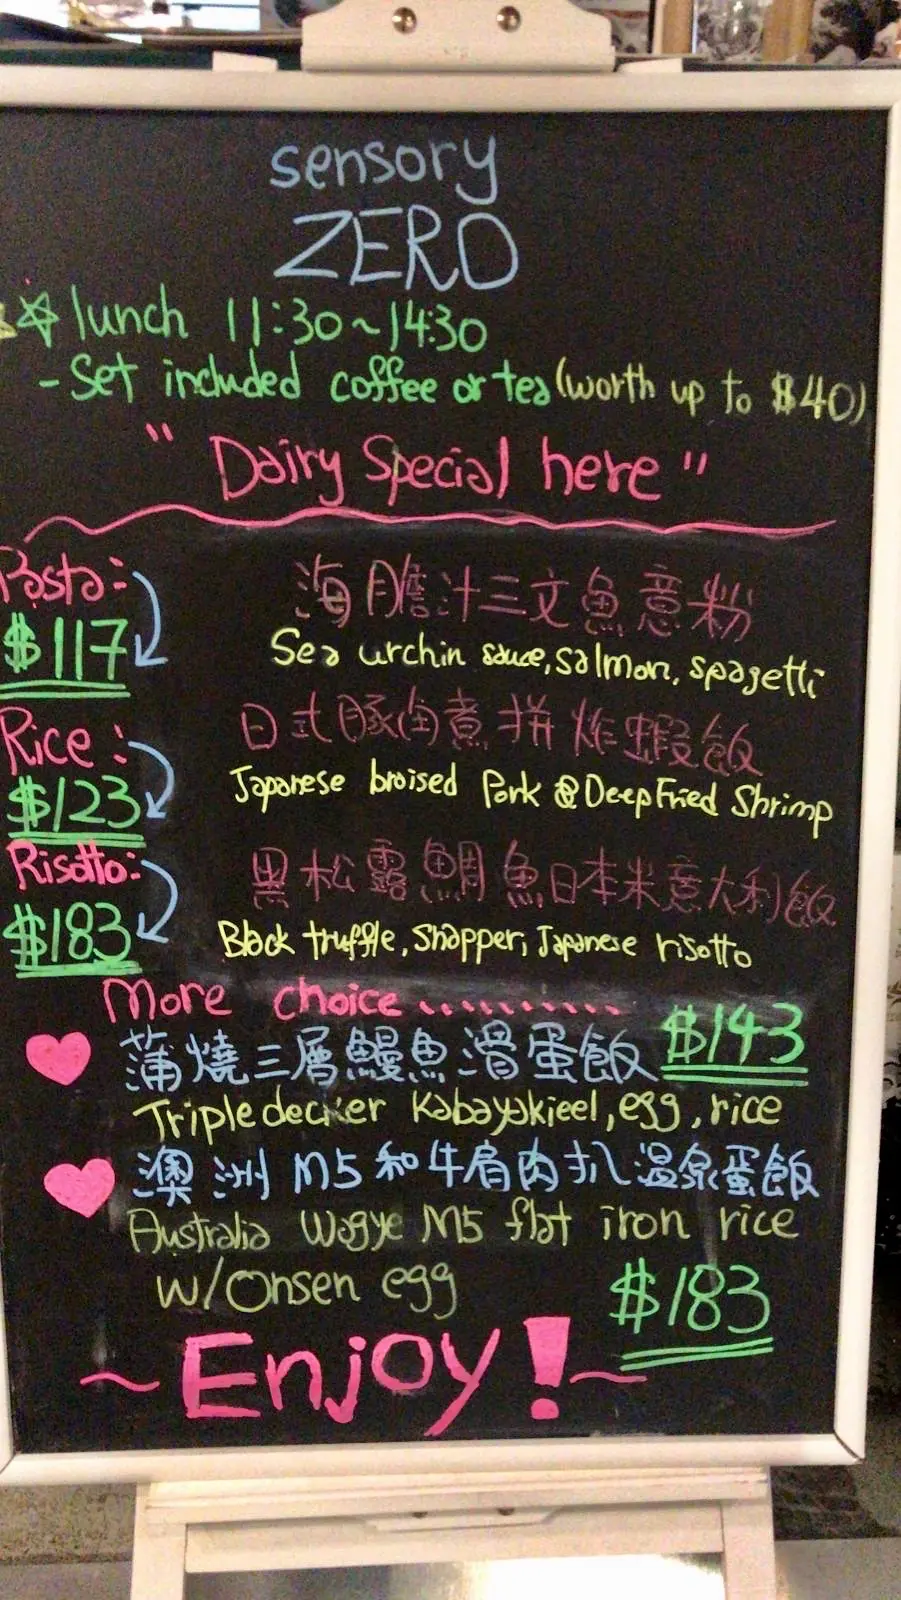 sensory
ZERO
lunch 11:30~14:30
- Set included coffee or tea (worth up to $40)
"Dairy Special here"
Pasta:
$117
海膽汁三文魚意粉
Sea urchin sauce, salmon, spagetti
Rice:
$123
日式豚角煮拼炸蝦飯
Japanese braised Pork @ DeepFried Shrimp
Risotto:
$183
黑松露鯛魚日本米意大利飯
Black truffle, Snapper, Japanese risotto
More choice ..........
$143
蒲燒三層鰻魚滑蛋飯
Triple decker Kabayakieel, egg, rice
澳洲M5和牛肩肉扒溫泉蛋飯
Australia Wagye M5 flat iron rice
w/Onsen egg
$183
~Enjoy!~